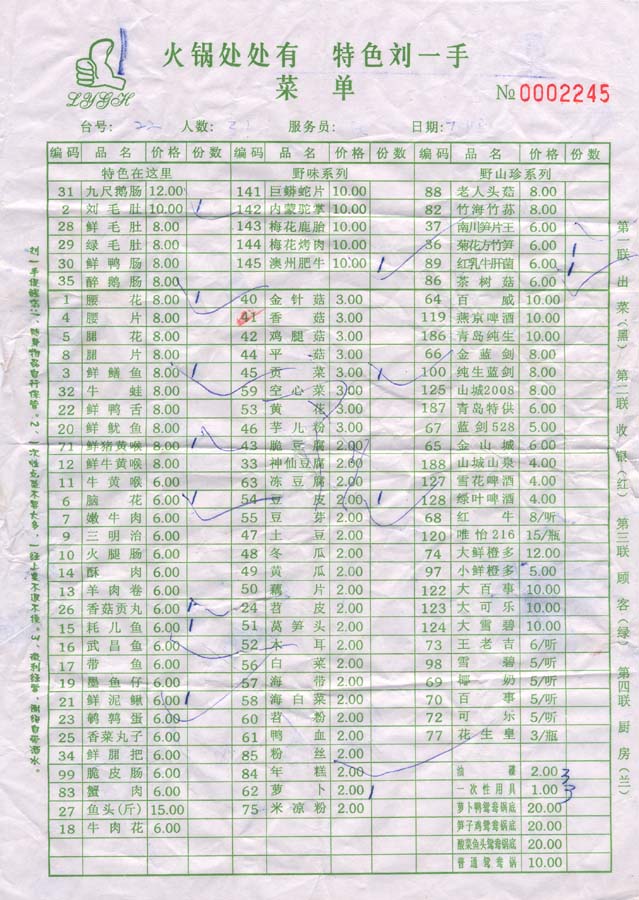 LYGH
火锅处处有 特色刘一手
菜单
№ 0002245
台号: 22 人数: 服务员: 日期:
编码 品名 价格 份数 编码 品名 价格 份数 编码 品名 价格 份数
特色在这里 野味系列 野山珍系列
31 九尺鹅肠 12.00 141 巨蟒蛇片 10.00 88 老人头菇 8.00
2 刘毛肚 10.00 1 142 内蒙驼掌 10.00 82 竹海竹荪 8.00
28 鲜毛肚 8.00 143 梅花鹿胎 10.00 37 南川笋片王 6.00
29 绿毛肚 8.00 144 梅花烤肉 10.00 36 菊花方竹笋 6.00 1
30 鲜鸭肠 8.00 145 澳州肥牛 10.00 1 89 红乳牛肝菌 6.00 1
35 醉鹅肠 8.00 86 茶树菇 6.00 1
1 腰花 8.00 1 40 金针菇 3.00 64 百威 10.00
4 腰片 8.00 41 香菇 3.00 119 燕京啤酒 10.00
5 腘花 8.00 42 鸡腿菇 3.00 186 青岛纯生 10.00
8 腘片 8.00 44 平菇 3.00 66 金蓝剑 8.00
3 鲜鳝鱼 8.00 1 45 贡菜 3.00 1 100 纯生蓝剑 8.00
32 牛蛙 8.00 59 空心菜 3.00 125 山城2008 8.00
22 鲜鸭舌 8.00 53 黄花 3.00 187 青岛特供 6.00
20 鲜鱿鱼 8.00 46 芋儿粉 3.00 67 蓝剑528 5.00
71 鲜猪黄喉 8.00 1 43 脆豆腐 2.00 65 金山城 6.00
12 鲜牛黄喉 8.00 33 神仙豆腐 2.00 188 山城山泉 4.00
11 牛黄喉 6.00 63 冻豆腐 2.00 127 雪花啤酒 4.00
6 脑花 6.00 1 54 豆皮 2.00 1 128 绿叶啤酒 4.00
7 嫩牛肉 6.00 55 豆芽 2.00 68 红牛 8/听
9 三明治 6.00 47 土豆 2.00 120 唯怡216 15/瓶
10 火腿肠 6.00 48 冬瓜 2.00 74 大鲜橙多 12.00
14 酥肉 6.00 49 黄瓜 2.00 97 小鲜橙多 5.00
13 羊肉卷 6.00 50 藕片 2.00 122 大百事 10.00
26 香菇贡丸 6.00 1 24 苕皮 2.00 123 大可乐 10.00
15 耗儿鱼 6.00 1 51 莴笋头 2.00 124 大雪碧 10.00
16 武昌鱼 6.00 52 木耳 2.00 73 王老吉 6/听
17 带鱼 6.00 56 白菜 2.00 98 雪碧 5/听
19 墨鱼仔 6.00 57 海带 2.00 69 椰奶 5/听
21 鲜泥鳅 6.00 1 58 海白菜 2.00 70 百事 5/听
23 鹌鹑蛋 6.00 60 苕粉 2.00 72 可乐 5/听
25 香菜丸子 6.00 61 鸭血 2.00 77 花生皇 3/瓶
34 鲜腘把 6.00 85 粉丝 2.00
99 脆皮肠 6.00 84 年糕 2.00 油碟 2.00 3
83 蟹肉 6.00 62 萝卜 2.00 1 一次性用具 1.00 3
27 鱼头(斤) 15.00 75 米凉粉 2.00 萝卜鸭鸳鸯锅底 20.00
18 牛肉花 6.00 笋子鸡鸳鸯锅底 20.00
酸菜鱼头鸳鸯锅底 20.00
普通鸳鸯锅 10.00
第一联 出菜(黑) 第二联 收银(红) 第三联 顾客(绿) 第四联 厨房(兰)